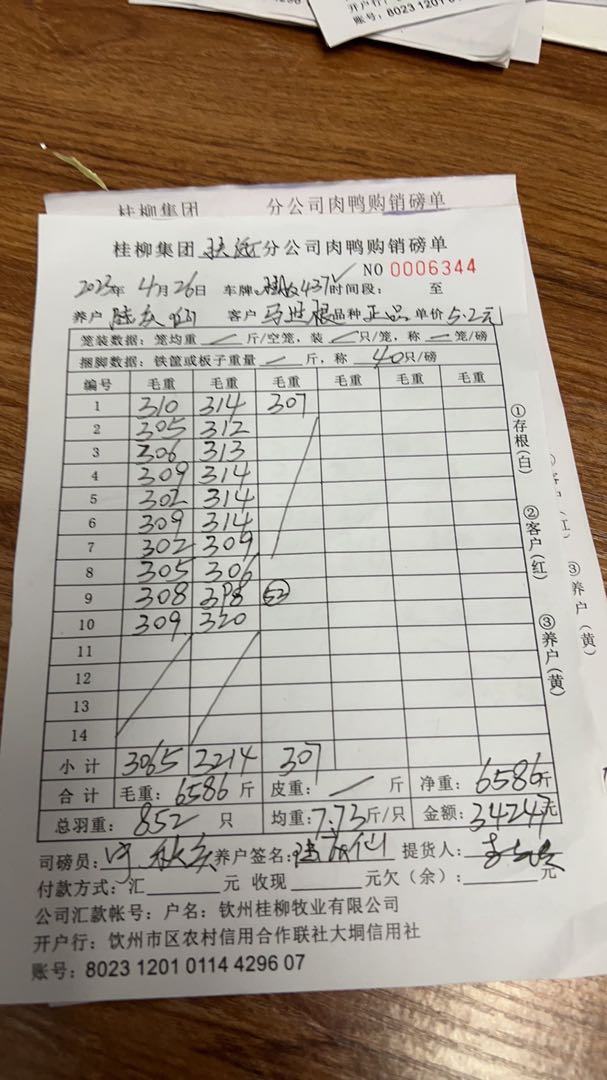 开户行:
账号: 8023 1201 0
桂柳集团 分公司肉鸭购销磅单
桂柳集团 扶绥 分公司肉鸭购销磅单
NO 0006344
2023年 4月26日 车牌: 437 时间段: 至
养户 客户 马世根 品种 正品 单价 5.2元
笼装数据: 笼均重 / 斤/空笼, 装 / 只/笼, 称 / 笼/磅
捆脚数据: 铁筐或板子重量 / 斤, 称 40只/磅
编号 毛重 毛重 毛重 毛重 毛重 毛重
1 310 314 307
2 305 312
3 306 313
4 309 314
5 302 314
6 309 314
7 302 309
8 305 306
9 308 398 52
10 309 320
11
12
13
14
小计 3065 3214 307
合计 毛重: 6586 斤 皮重: / 斤 净重: 6586斤
总羽重: 852 只 均重: 7.73斤/只 金额: 34247元
司磅员: 养户签名: 提货人:
付款方式: 汇 元 收现 元欠(余): 元
公司汇款帐号: 户名: 钦州桂柳牧业有限公司
开户行: 饮州市区农村信用合作联社大垌信用社
账号: 8023 1201 0114 4296 07
①存根(白)
②客户(红)
③养户(黄)
③养户(黄)